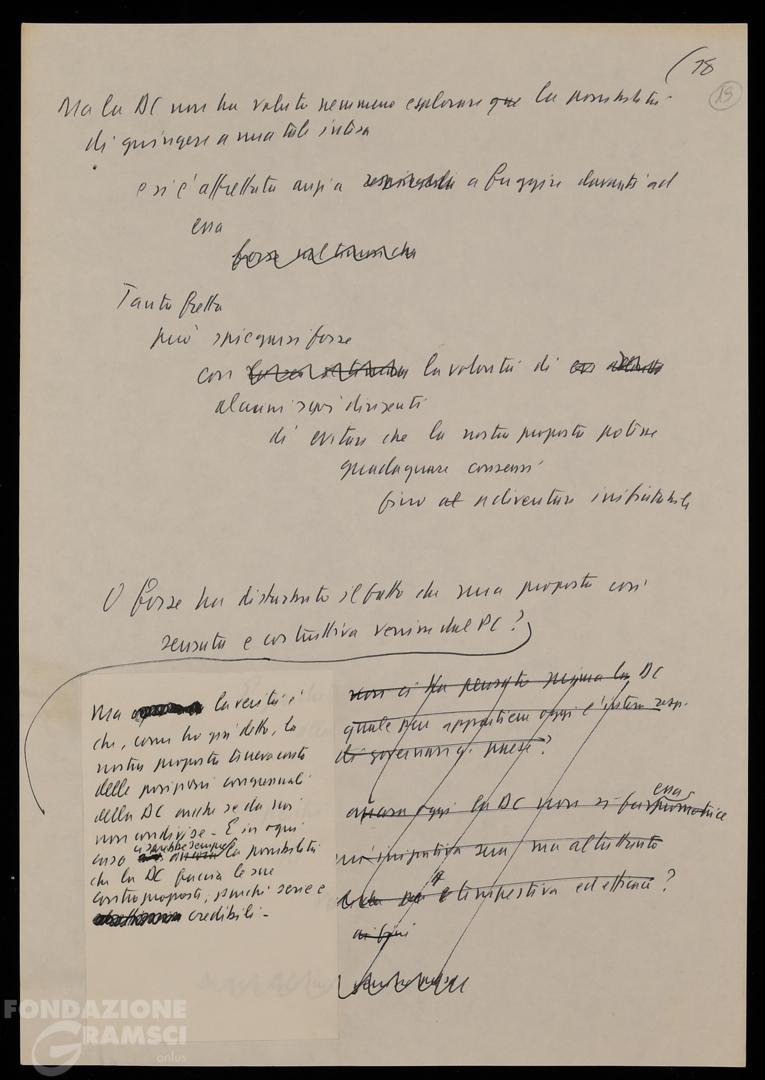 18
19
Ma la DC non ha voluto nemmeno esplorare la possibilità
di giungere a una tale intesa
e si è affrettata anzi a a fuggire davanti ad
essa
Tanta fretta
può spiegarsi forse
con la volontà di
alcuni suoi dirigenti
di evitare che la nostra proposta potesse
guadagnare consensi
fino a diventare irrifiutabile
O forse ha disturbato il fatto che una proposta così
sensata e costruttiva venisse dal PC?
Ma la verità è
che, come ho già detto, la
nostra proposta teneva conto
delle posizioni congressuali
della DC anche se da noi
non condivise - E in ogni
caso vi sarebbe sempre la possibilità
che la DC faccia le sue
controproposte, purché serie e
credibili -
non ci ha pensato prima la DC
quale pure appartiene oggi l'intera resp.
di governare il paese?
ancora oggi la DC non si fa essa promotrice
iniziativa sua ma altrettanto
tempestiva ed efficace?
ai fini
FONDAZIONE
GRAMSCI
onlus